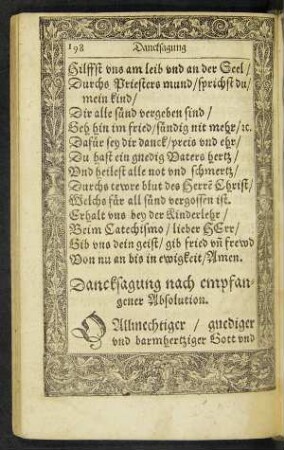 198 Dancksagung
Hilffst vns am leib vnd an der Seel /
Durchs Priesters mund / sprichst du /
mein kind /
Dir alle sünd vergeben sind /
Geh hin im fried / sündig nit mehr / ꝛc.
Dafür sey dir danck / preis vnd ehr /
Du hast ein gnedig Vaters hertz /
Vnd heilest alle not vnd schmertz /
Durchs tewre blut des Herrē Christ /
Welchs für all sünd vergossen ist.
Erhalt vns bey der Kinderlehr /
Beim Catechismo / lieber HErr /
Gib vns dein geist / gib fried vñ frewd
Von nu an bis in ewigkeit / Amen.
Dancksagung nach empfan-
gener Absolution.
O Allmechtiger / gnediger
vnd barmhertziger Gott vnd